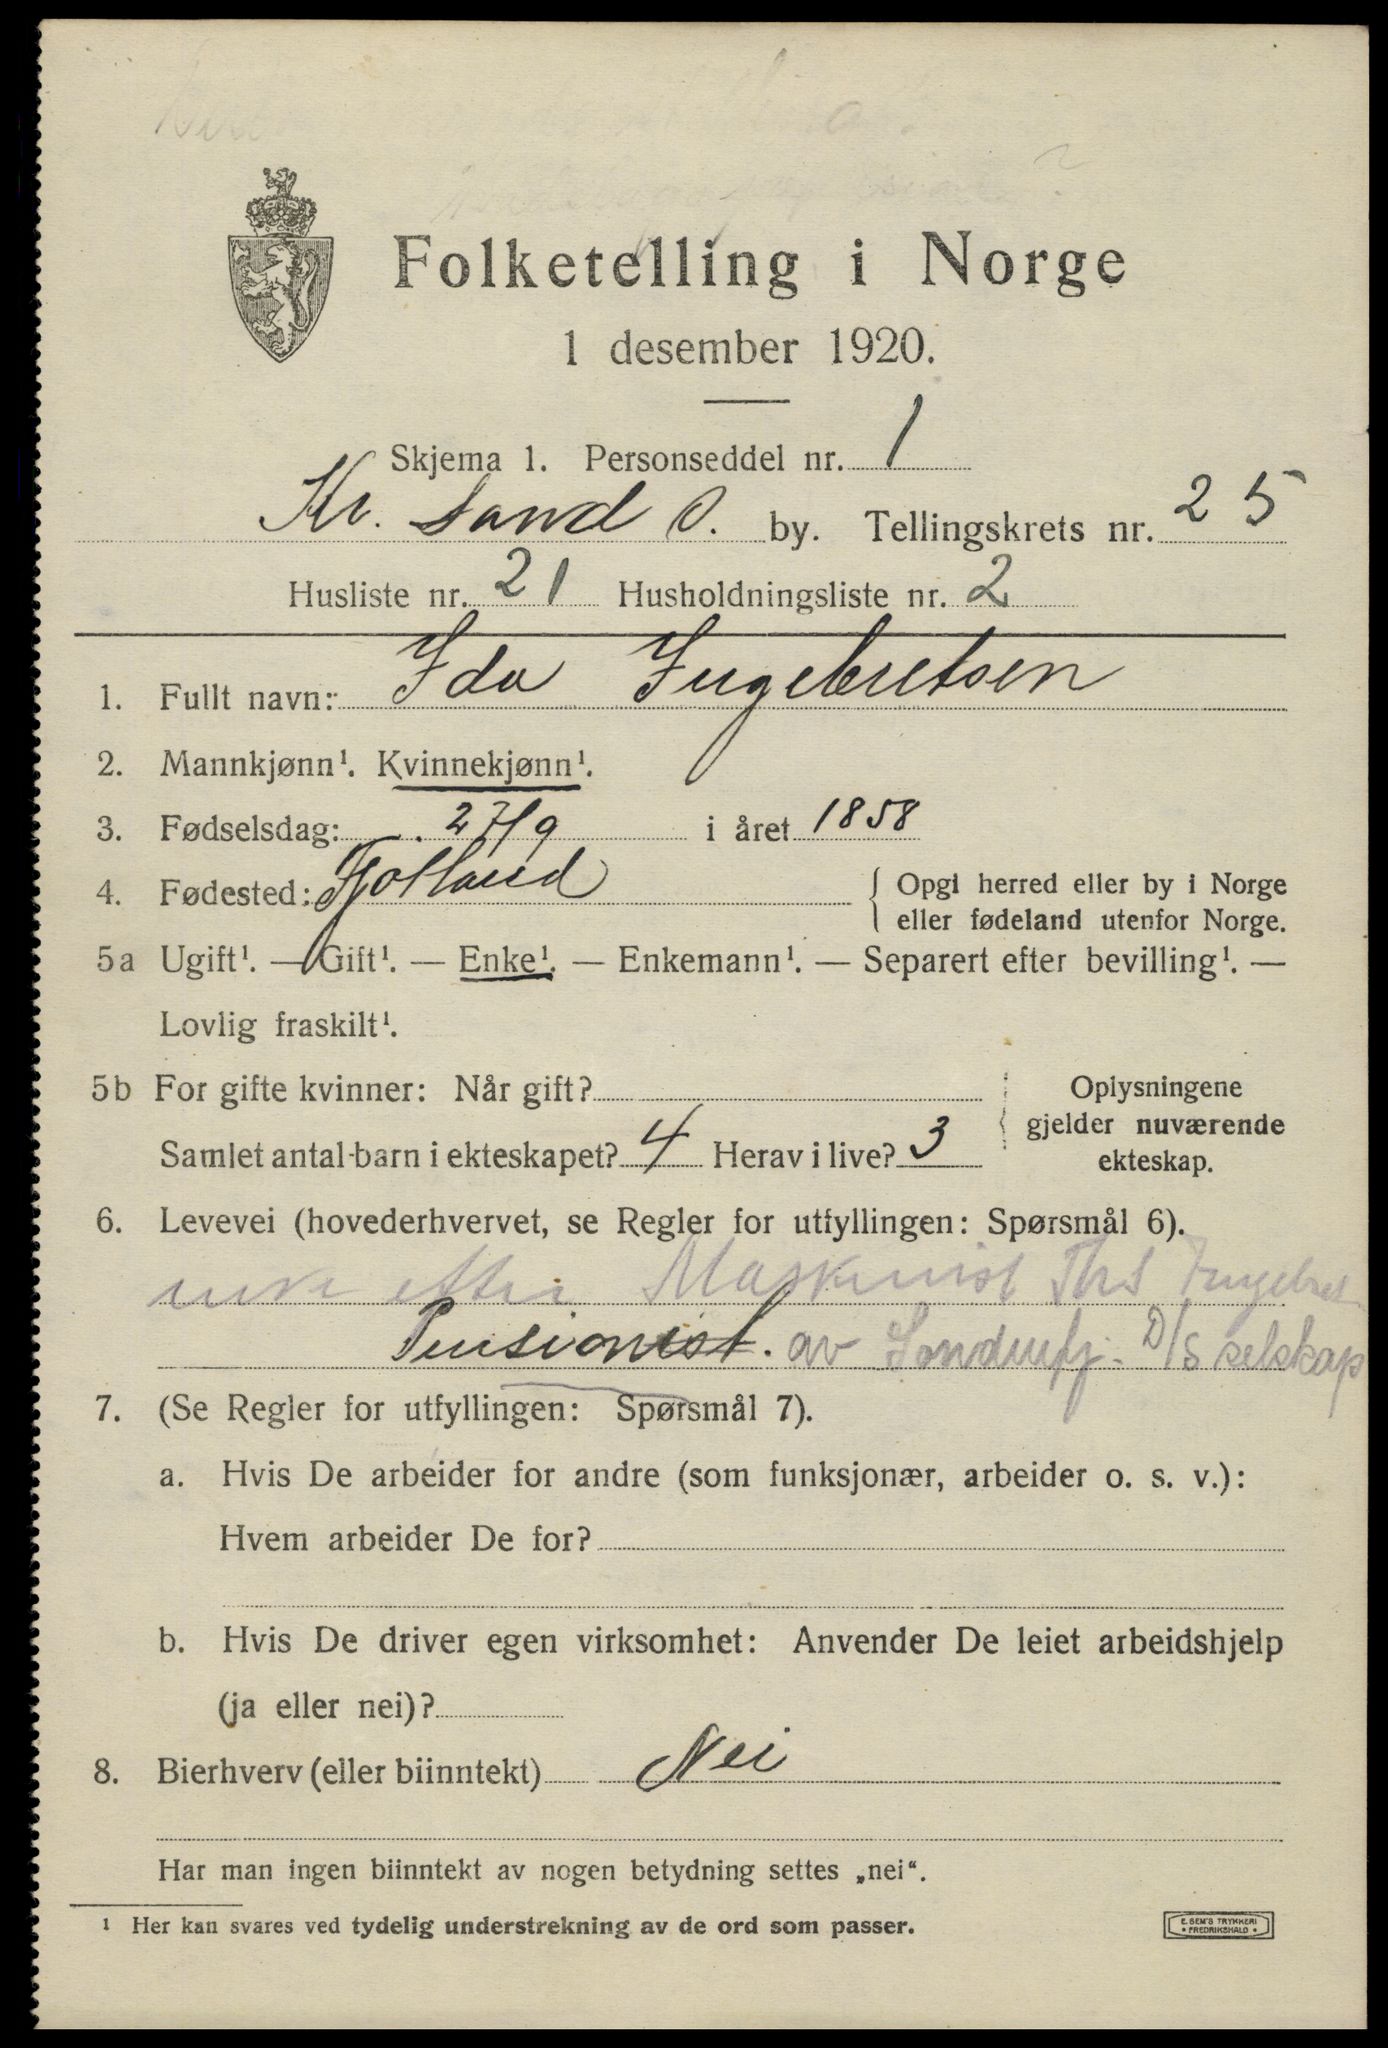 Folketelling i Norge
1 desember 1920.
Skjema 1. Personseddel nr. 1
Kr. Sand S. by. Tellingskrets nr. 25
Husliste nr. 21 Husholdningsliste nr. 2
1. Fullt navn: Ida Ingebretsen
2. Mannkjønn¹. Kvinnekjønn¹.
3. Fødselsdag: 27/9 i året 1858
4. Fødested: Fjotland { Opgi herred eller by i Norge
eller fødeland utenfor Norge.
5a Ugift¹. — Gift¹. — Enke¹. — Enkemann¹. — Separert efter bevilling¹. —
Lovlig fraskilt¹.
5b For gifte kvinner: Når gift? Oplysningene
gjelder nuværende
Samlet antal barn i ekteskapet? 4 Herav i live? 3 ekteskap.
6. Levevei (hovederhvervet, se Regler for utfyllingen: Spørsmål 6).
enke etter Maskinist Ths Ingebret
Pensionist. av D/S selskap
7. (Se Regler for utfyllingen: Spørsmål 7).
a. Hvis De arbeider for andre (som funksjonær, arbeider o. s. v.):
Hvem arbeider De for?
b. Hvis De driver egen virksomhet: Anvender De leiet arbeidshjelp
(ja eller nei)?
8. Bierhverv (eller biinntekt) Nei
Har man ingen biinntekt av nogen betydning settes „nei“.
¹ Her kan svares ved tydelig understrekning av de ord som passer.
E. SEM'S TRYKKERI
• FREDRIKSHALD •